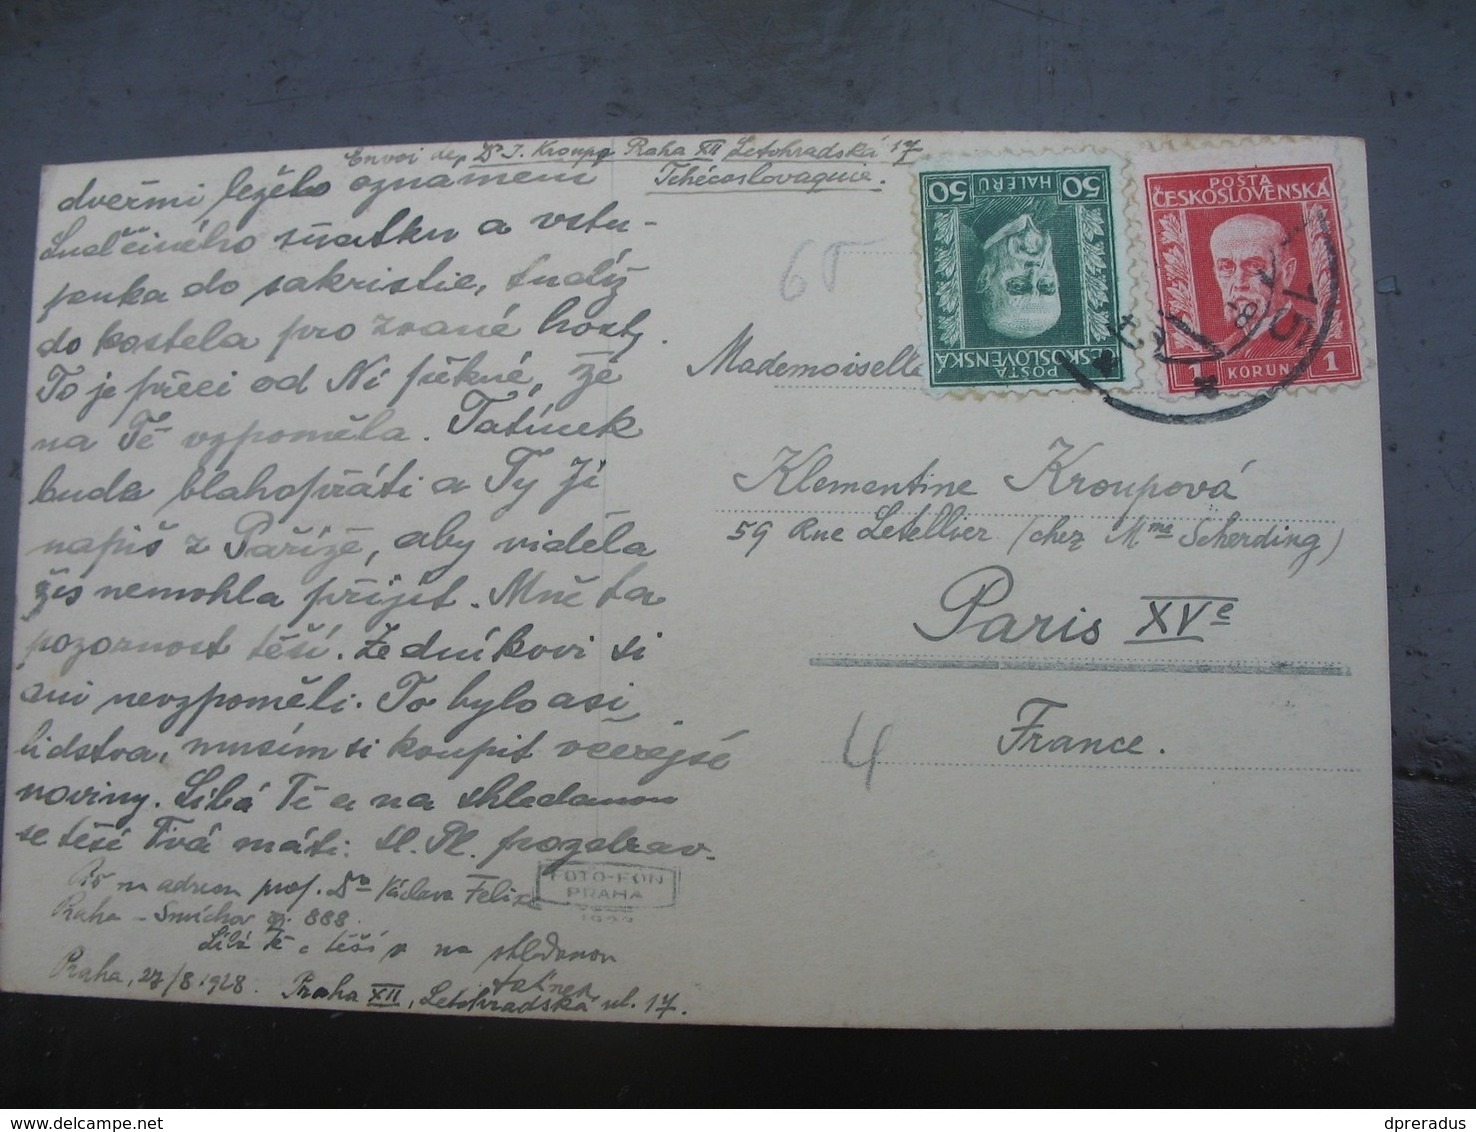 Envoi de, Dr J. Kroupa Praha XII Letohradská 17/I
Tchécoslovaquie.
dveřmi ležělo oznámení
sňatku a vstu-
penka do sakristie, tudíž
do kostela pro zvané hosty.
To je přeci od Ní pěkné, že
na Tě vzpoměla. Tatínek
bude blahopřáti a Ty Jí
napiš z Paříže, aby viděla
žes nemohla přijít. Mně ta
pozornost těší. Zedníkovi si
ani nevzpoměli. To bylo asi
lidstva, musím si koupit včerejší
noviny. Líbá Tě a na shledanou
se těší Tvá máti. Sl. Pl. pozdrav.
Piš na adresu prof. Dr Václava Felix
Praha - Smíchov čp. 888.
Líbá Tě a těší se na shledanou
tatínek
Praha, 27/8 1928. Praha XII, Letohradská ul. 17.
FOTO-FON
PRAHA
65
Mademoiselle
Klementine Kroupová
59 Rue Letellier (chez Mme Scherding)
Paris XVe
France.
4
50 HALÉŘŮ 50
POŠTA
ČESKOSLOVENSKÁ
POŠTA
ČESKOSLOVENSKÁ
1 KORUNA 1